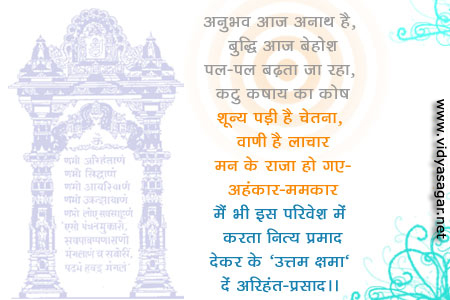 अनुभव आज अनाथ है,
बुद्धि आज बेहोश
पल-पल बढ़ता जा रहा,
कटु कषाय का कोष
शून्य पड़ी है चेतना,
वाणी है लाचार
मन के राजा हो गए-
अहंकार-ममकार
मैं भी इस परिवेश में
करता नित्य प्रमाद
देकर के ‘उत्तम क्षमा‘
दें अरिहंत-प्रसाद।।
णमो अरिहंताणं
णमो सिद्धाणं
णमो आयरियाणं
णमो उवज्झायाणं
णमो लोए सव्वसाहूणं
www.vidyasagar.net